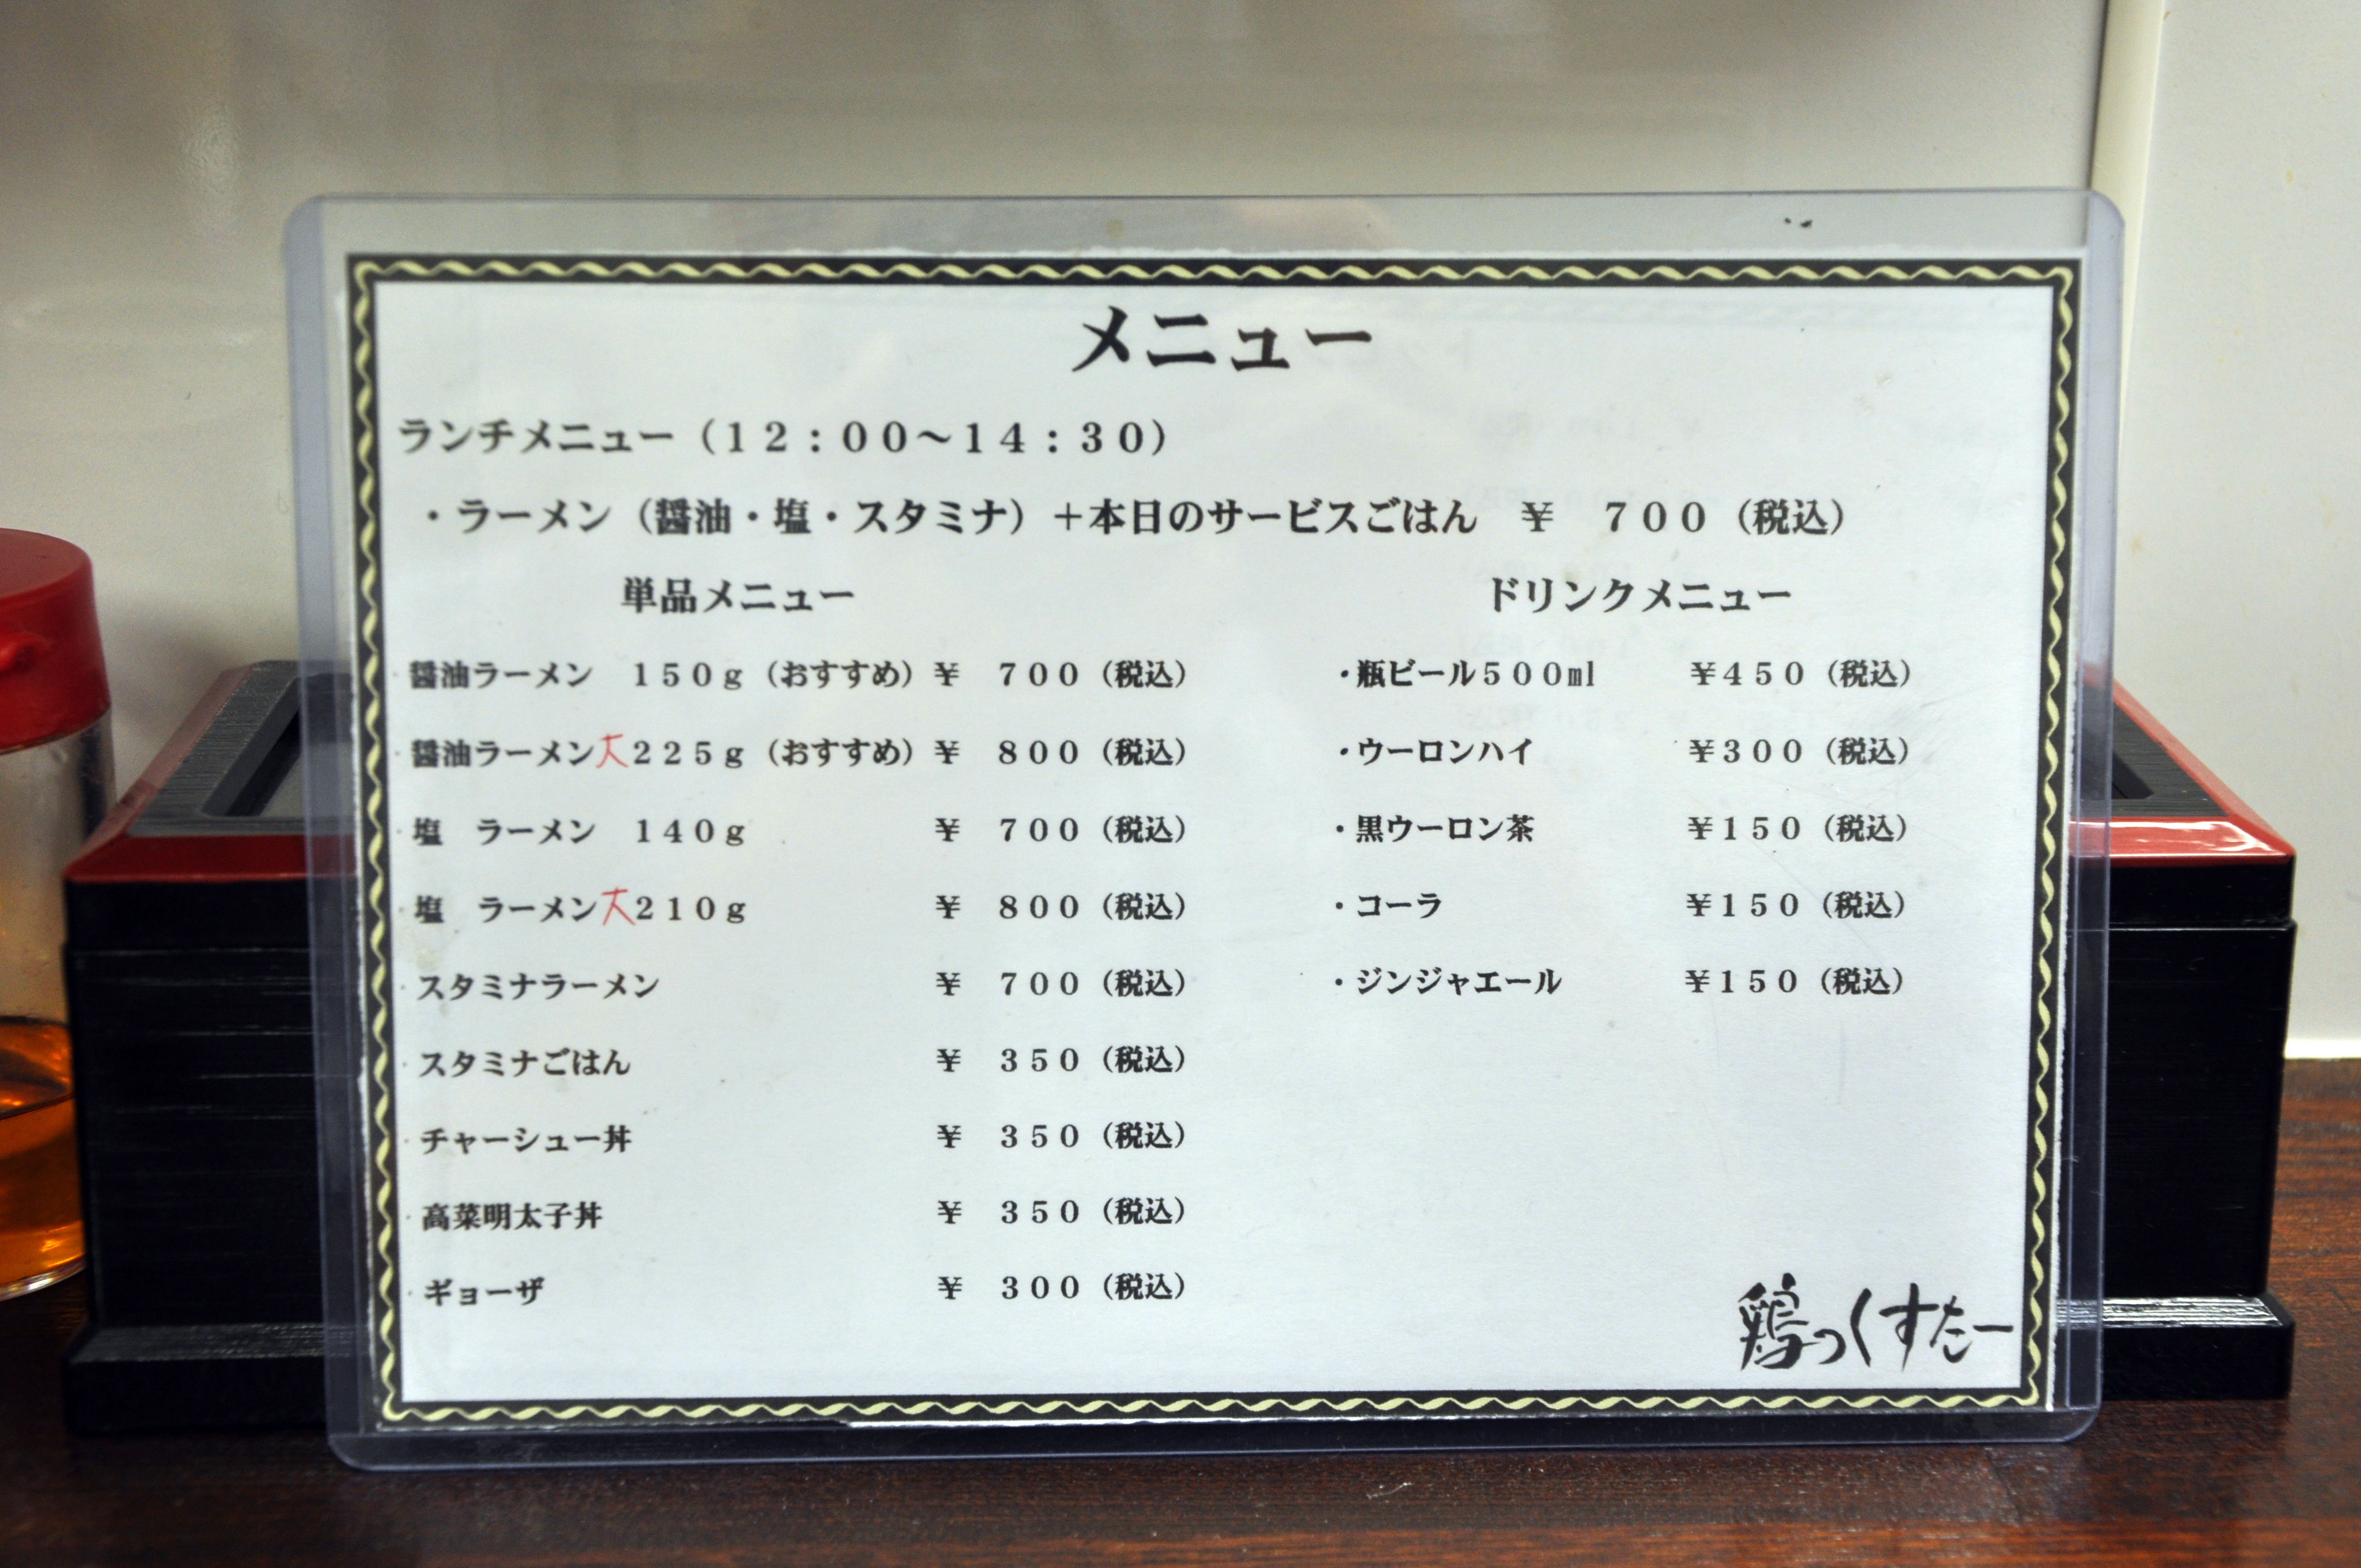 メニュー
ランチメニュー(12:00～14:30)
・ラーメン(醤油・塩・スタミナ)+本日のサービスごはん ¥ 700(税込)
単品メニュー
・醤油ラーメン 150g(おすすめ) ¥ 700(税込)
・醤油ラーメン大225g(おすすめ) ¥ 800(税込)
・塩 ラーメン 140g ¥ 700(税込)
・塩 ラーメン大210g ¥ 800(税込)
・スタミナラーメン ¥ 700(税込)
・スタミナごはん ¥ 350(税込)
・チャーシュー丼 ¥ 350(税込)
・高菜明太子丼 ¥ 350(税込)
・ギョーザ ¥ 300(税込)
ドリンクメニュー
・瓶ビール500ml ¥450(税込)
・ウーロンハイ ¥300(税込)
・黒ウーロン茶 ¥150(税込)
・コーラ ¥150(税込)
・ジンジャエール ¥150(税込)
鶏っくすたー